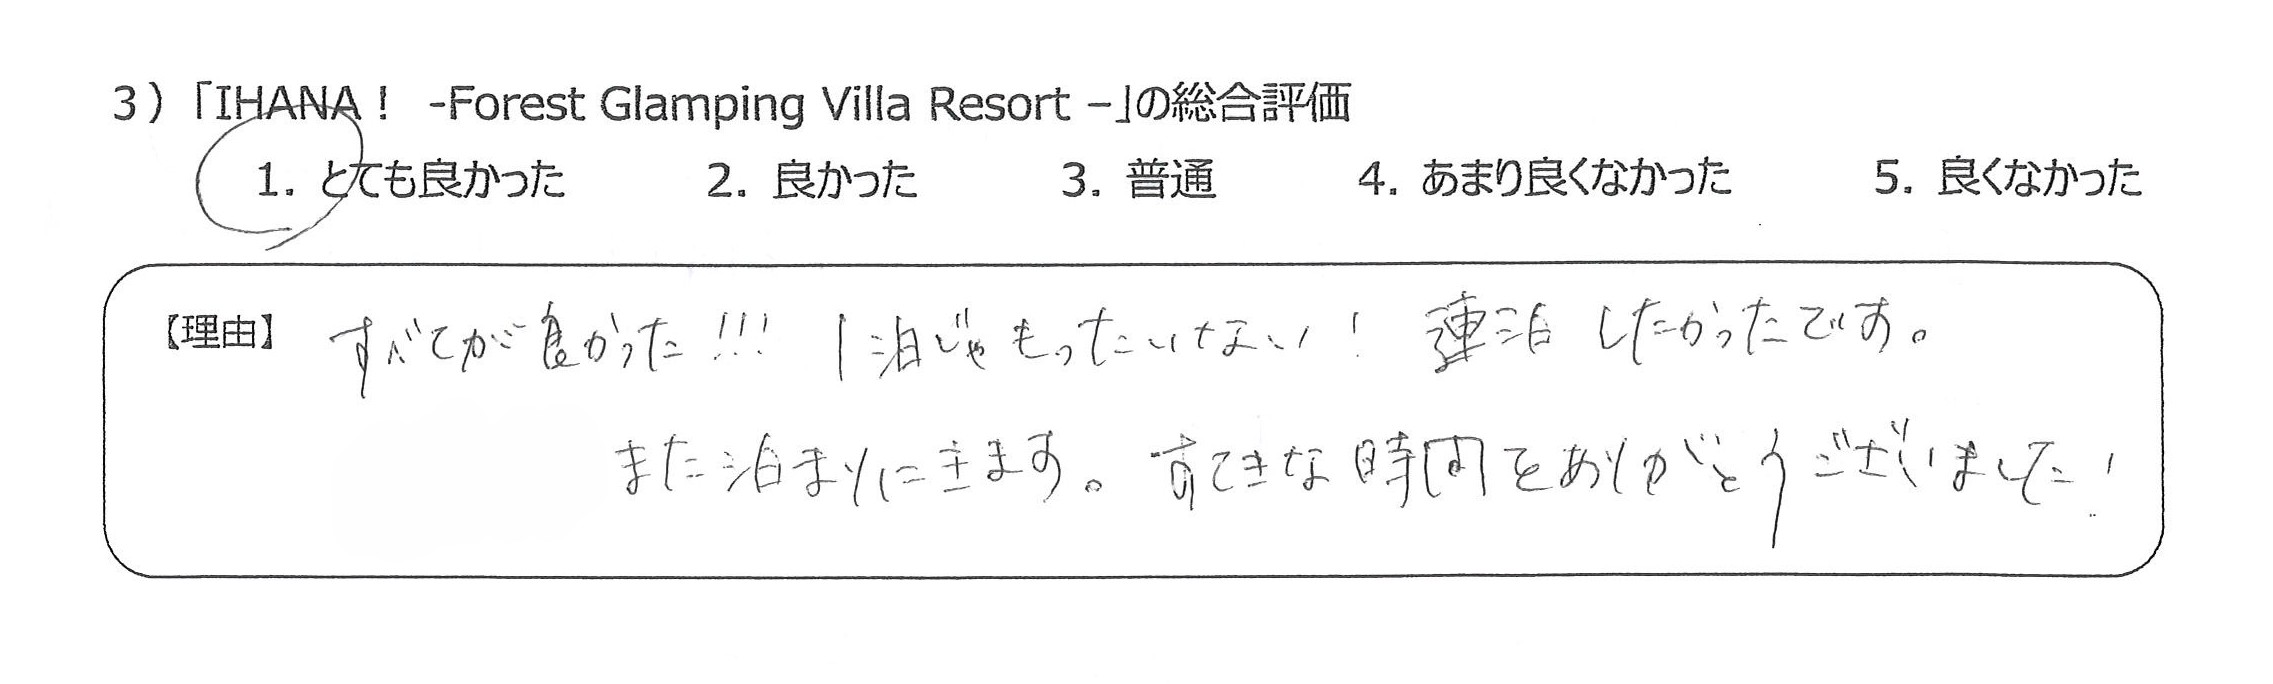 3）「IHANA！ -Forest Glamping Villa Resort –」の総合評価
1. とても良かった 2. 良かった 3. 普通 4. あまり良くなかった 5. 良くなかった
【理由】 すべてが良かった!!! 1泊じゃもったいない! 連泊したかったです。
また泊まりにきます。すてきな時間をありがとうございました!